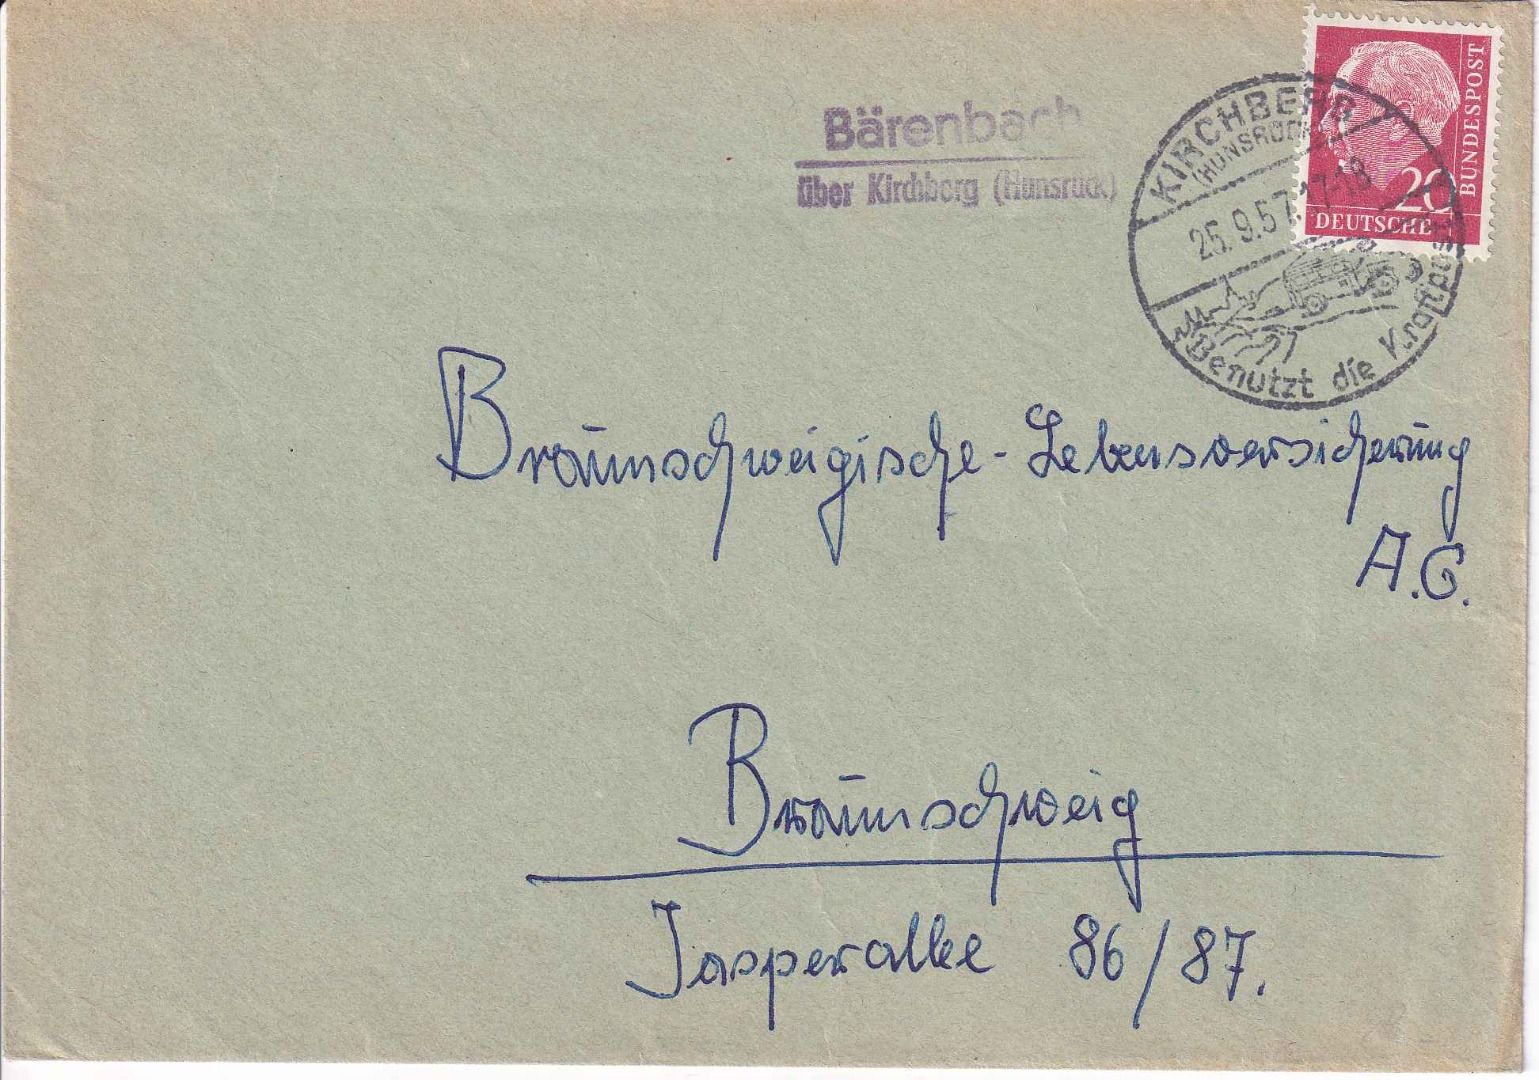 Bärenbach
über Kirchberg (Hunsrück)
KIRCHBERG
(HUNSRÜCK)
25.9.57.17-18
Benutzt die Kraftpost
20
DEUTSCHE
BUNDESPOST
Braunschweigische-Lebensversicherung
A.G.
Braunschweig
Jasperallee 86/87.